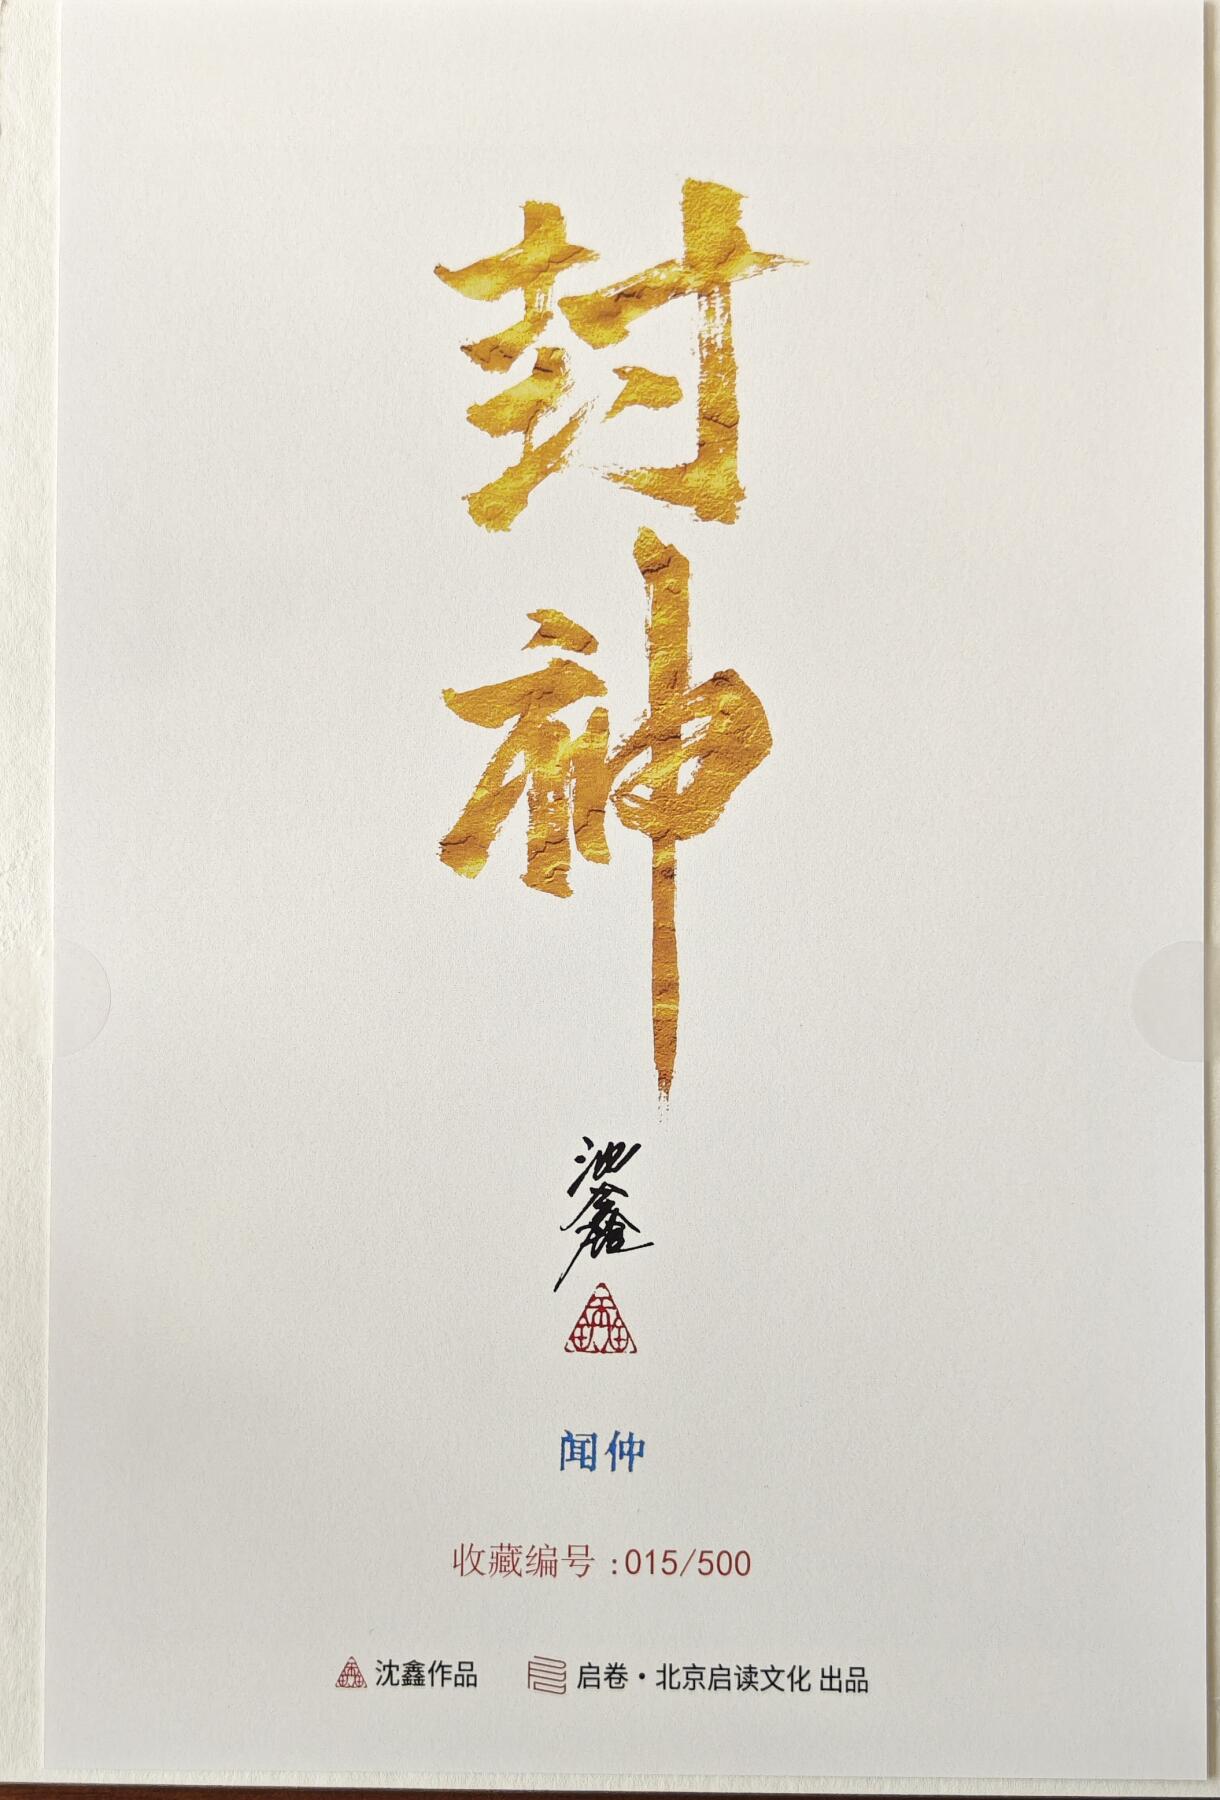 封神
沈鑫
闻仲
收藏编号 :015/500
沈鑫作品 启卷·北京启读文化 出品